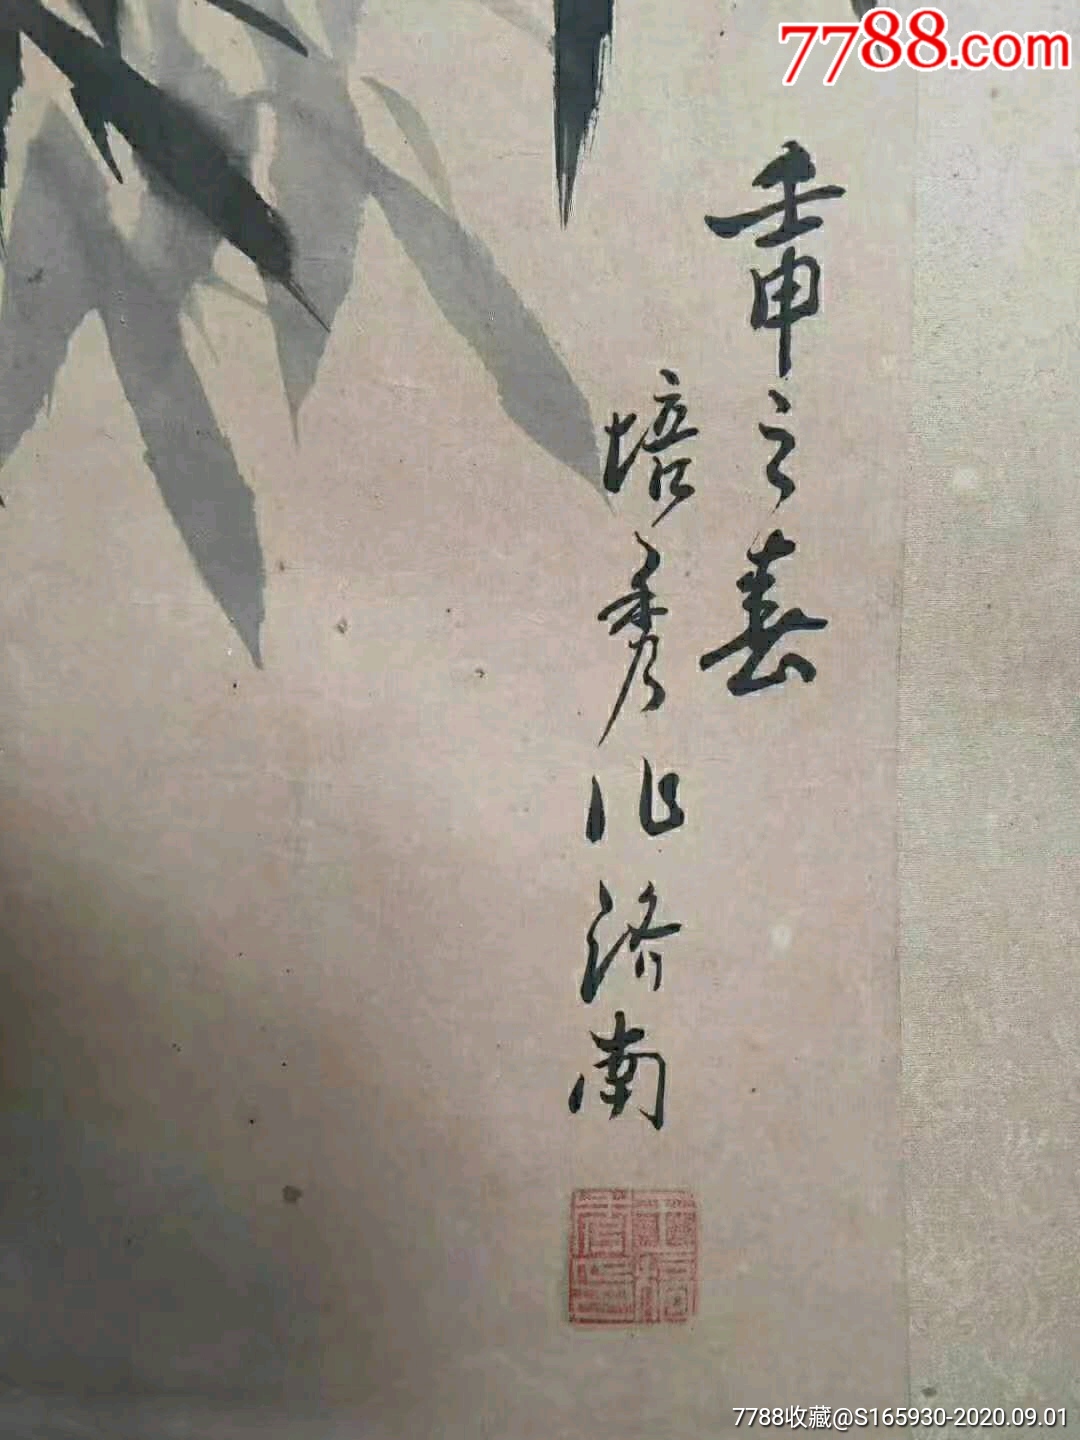 7788.com
壬申之春
培秀作济南
7788收藏@S165930-2020.09.01